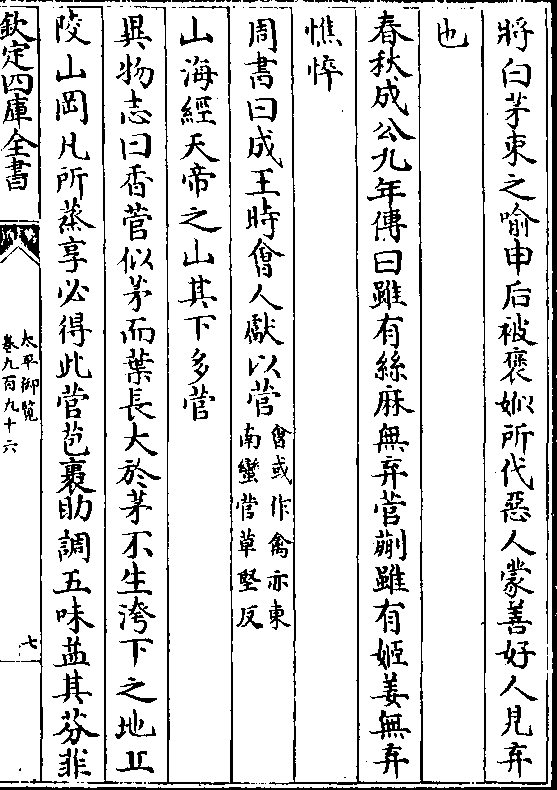 將白茅束之喻申后被褒姒所代惡人蒙善好人見弃
也
春秋成公九年傳曰雖有絲麻無弃菅蒯雖有姬姜無弃
憔悴
周書曰成王時㑹人獻以菅㑹或作禽亦東
南蠻菅草堅反
山海經天帝之山其下多菅
異物志曰香菅似茅而葉長大於茅不生洿下之地丘
陵山岡凡所蒸享必得此菅苞裹助調五味益其芬菲
欽定四庫全書
太平御覽
卷九百九十六
七